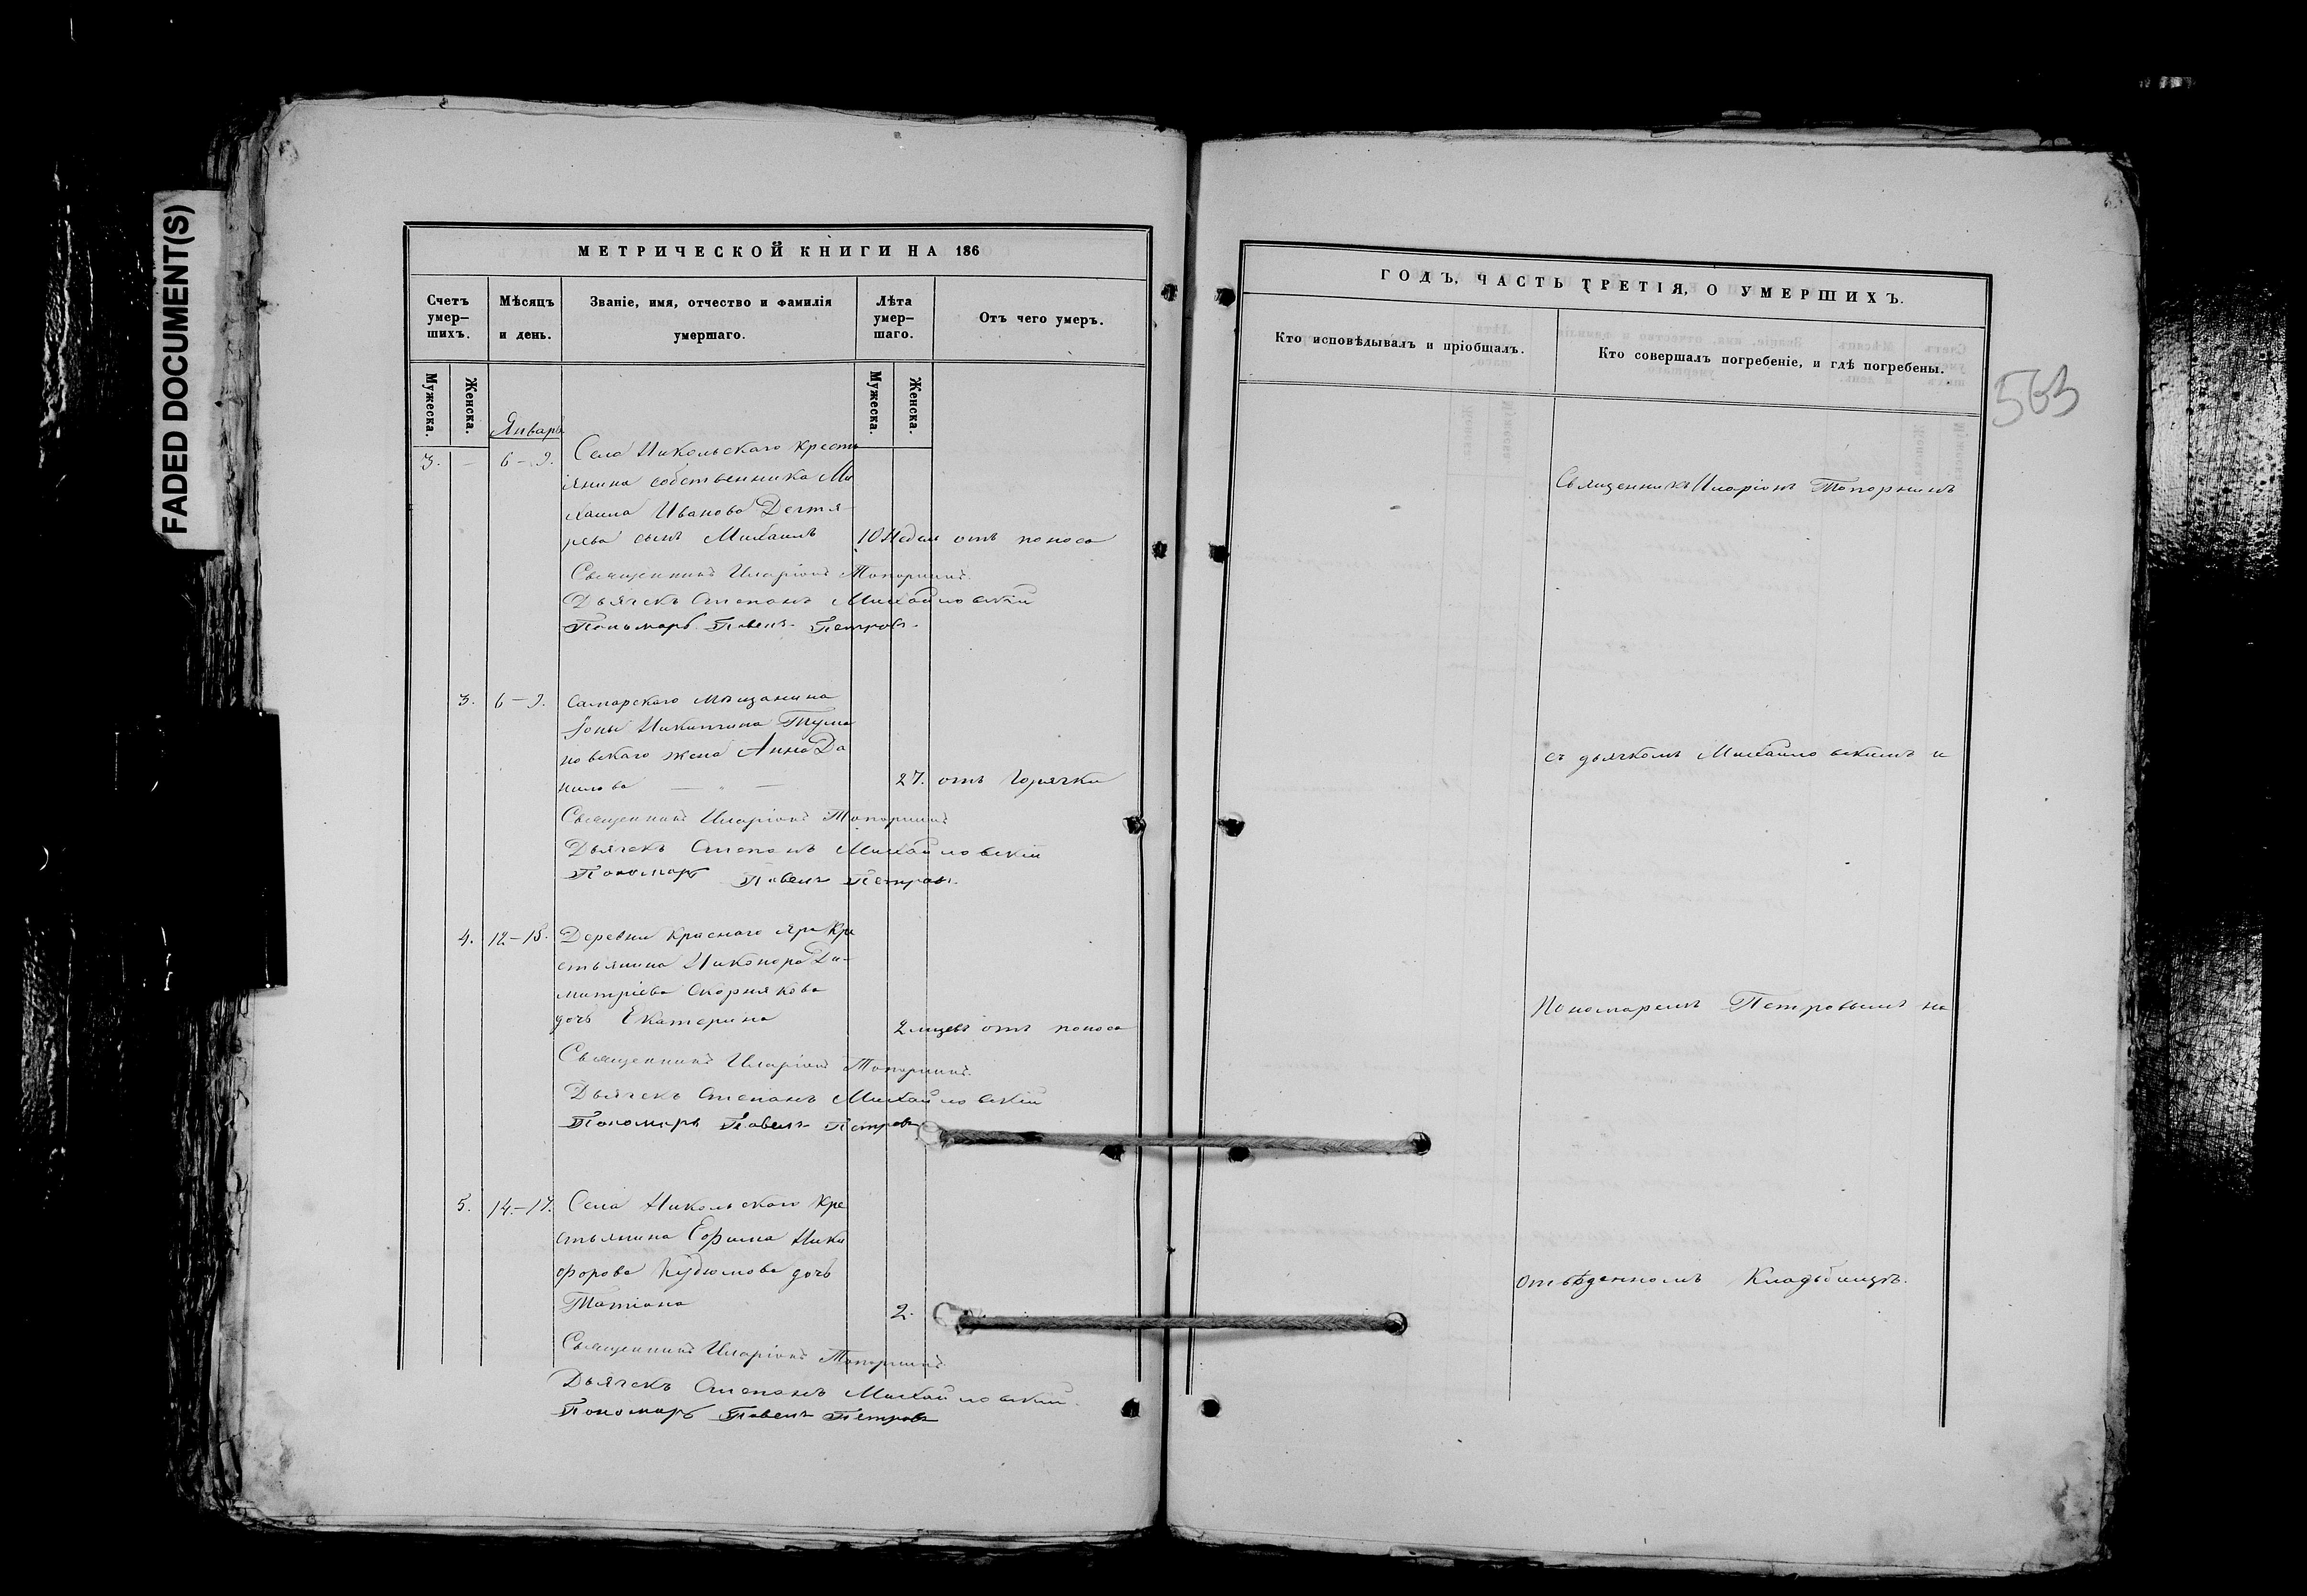 FADED DOCUMENT(S)
МЕТРИЧЕСКОЙ КНИГИ НА 186
Счетъ умер–шихъ.
Мѣсяцъ и день.
Званіе, имя, отчество и фамилія умершаго.
Лѣта умер–шаго.
Отъ чего умеръ.
Мужеска.
Женска.
Мужеска.
Женска.
Январь
3. – 6–9. Села Никольскаго кресть
янина собственника Ми
хаила Иванова Дегтя–
рева сынъ Михаилъ 10 Недель отъ поноса
Священникъ Иларіонъ Топорнинъ.
Дьячекъ Степанъ Михайловскій
Пономарь Павелъ Петровъ.
3. 6–9. Самарскаго мѣщанина
Іоны Никитина Тума
новскаго жена Анна Да
нилова — „ — 27. отъ горячки
Священникъ Иларіонъ Топорнинъ
Дьячекъ Степанъ Михайловскій
Пономарь Павелъ Петровъ.
4. 12–15. Деревни Краснаго Яра Кре
стьянина Никонора Ди–
митріева Скорнякова
дочь Екатерина 2 мцевъ отъ поноса
Священникъ Иларіонъ Топорнинъ.
Дьячекъ Степанъ Михайловскій
Пономарь Павелъ Петровъ
5. 14–17. Села Никольскаго Кре
стьянина Ефима Ники
форова дочь
Татіана 2.
Священникъ Иларіонъ Топорнинъ
Дьячекъ Степанъ Михайловскій.
Пономарь Павелъ Петровъ
ГОДЪ, ЧАСТЬ ТРЕТІЯ, О УМЕРШИХЪ.
Кто исповѣдывалъ и пріобщалъ.
Кто совершалъ погребеніе, и гдѣ погребены.
563
Священникъ Иларіонъ Топорнинъ
съ дьячкомъ Михайловскимъ и
Пономаремъ Петровымъ на
отвѣденномъ Кладбищѣ.